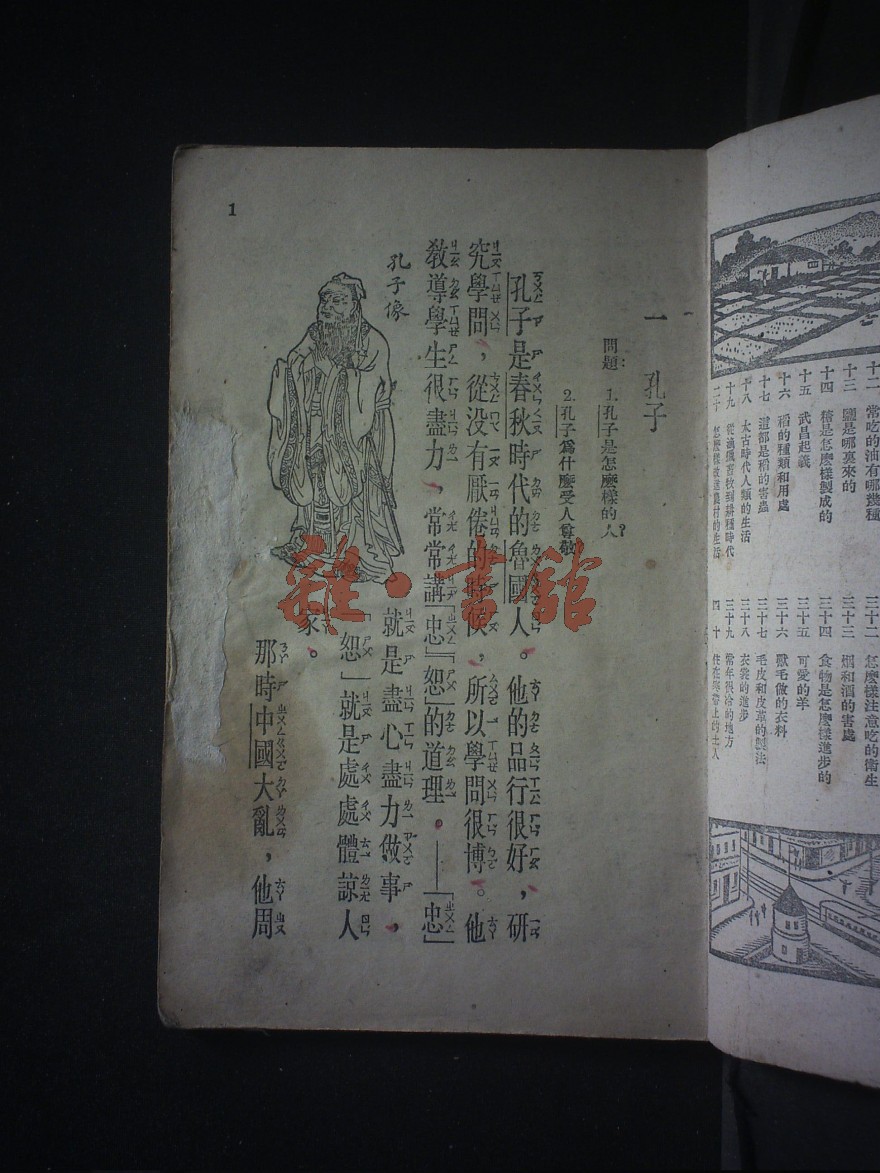 一 孔子
問題：1.孔子是怎麽樣的人？
2.孔子爲什麽受人尊敬
孔子是春秋時代的魯國人。他的品行很好，研
究學問，從没有厭倦的時候，所以學問很博。他
教導學生很盡力，常常講「忠」「恕」的道理。——「忠」
就是盡心盡力做事，
「恕」就是處處體諒人
家。
那時中國大亂，他周
孔子像
1
十二 常吃的油有哪幾種
十三 鹽是哪裏來的
十四 糖是怎麽樣製成的
十五 武昌起義
十六 稻的種類和用處
十七 這都是稻的害蟲
十八 太古時代人類的生活
十九 從漁獵畜牧到耕種時代
二十 怎麽樣改進農村的生活
三十二 怎麽樣注意吃的衛生
三十三 烟和酒的害處
三十四 食物是怎麽樣進步的
三十五 可愛的羊
三十六 獸毛做的衣料
三十七 毛皮和皮革的製法
三十八 衣裳的進步
三十九 常年很冷的地方
四十 住在寒帶上的土人
雜·書館